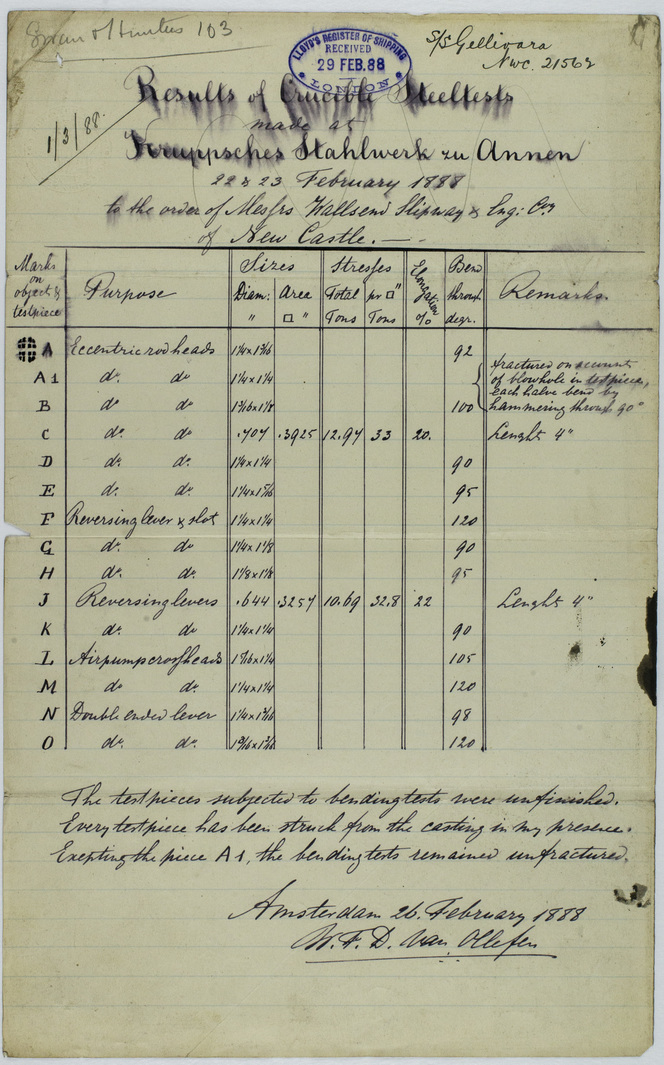 Swan & Hunters 103
S/S Gellivara
Nwc. 21562
LLOYD'S REGISTER OF SHIPPING
RECEIVED
29 FEB. 88
LONDON
1/3/88.
Results of Crucible Steeltests
made at
Kruppsches Stahlwerk zu Annen
22 & 23 February 1888
to the order of Messrs Wallsend Slipway & Eng: Coy
of New Castle. —
Marks on object & testpiece Purpose Sizes Diam. " Area □ " Stresses Total Tons pr □" Tons Elongation % Bend through degr. Remarks.
A Eccentric rod heads 1¼ x 1 3/16 92
A1 do. do 1¼ x 1¼ fractured on account of blowhole in testpiece, each halve bend by hammering through 90°
B do. do 1 3/16 x 1 1/8 100
C do. do. .707 .3925 12.97 33 20. Lenght 4"
D do. do. 1¼ x 1¼ 90
E do. do. 95
F Reversing lever & slot 1¼ x 1¼ 120
G do. do. 1¼ x 1 1/8 90
H do. do. 1 1/8 x 1 1/8 95
J Reversing levers .644 .3257 10.69 32.8 22 Lenght 4"
K do. do. 1¼ x 1¼ 90
L Airpump crossheads 105
M do do. 1¼ x 1¼ 120
N Double ended lever 1¼ x 1 3/16 98
O do. do. 120
The testpieces subjected to bendingtests were unfinished.
Every testpiece has been struck from the casting in my presence.
Exepting the piece A1, the bendingtests remained unfractured.
Amsterdam 26 February 1888
W. F. D. Van Ollefen